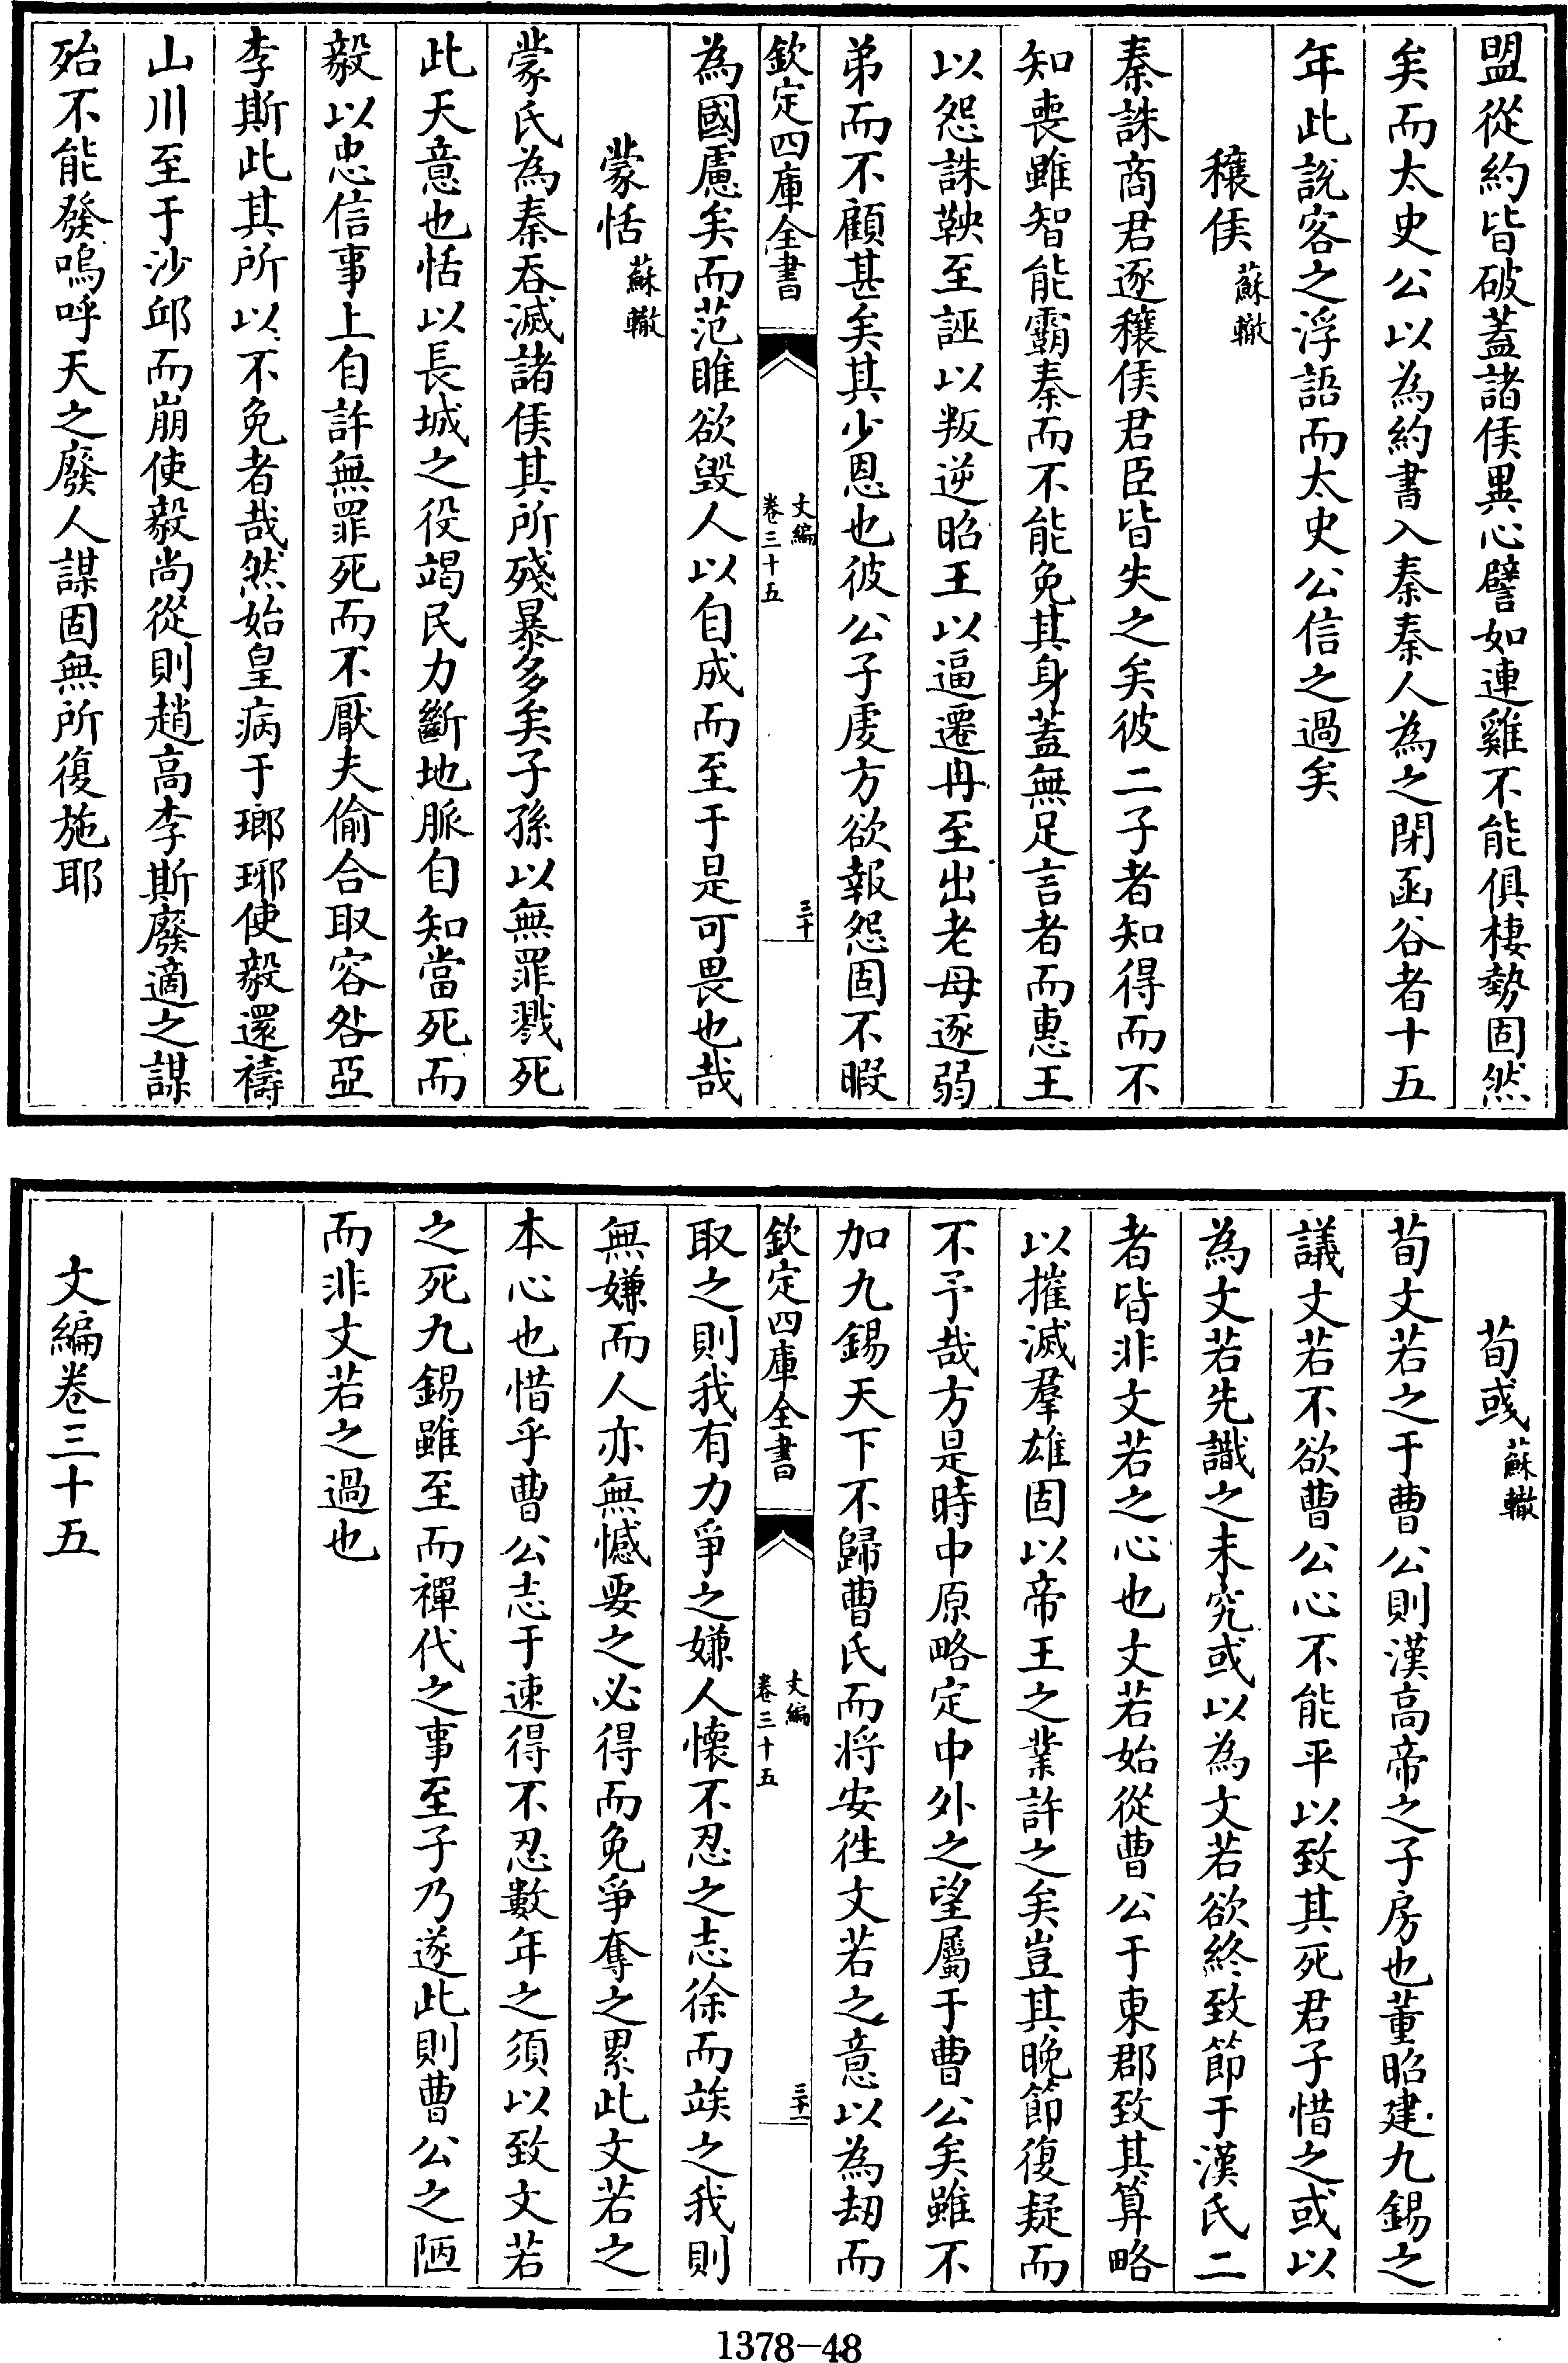 盟從約皆破蓋諸侯異心譬如連雞不能俱棲勢固然
矣而太史公以為約書入秦秦人為之閉函谷者十五
年此說客之浮語而太史公信之過矣
穰侯 蘇轍
秦誅商君逐穰侯君臣皆失之矣彼二子者知得而不
知喪雖智能霸秦而不能免其身蓋無足言者而惠王
以怨誅鞅至誣以叛逆昭王以逼遷冉至出老母逐弱
弟而不顧甚矣其少恩也彼公子虔方欲報怨固不暇
欽定四庫全書
文編
卷三十五
三十
為國慮矣而范雎欲毀人以自成而至于是可畏也哉
蒙恬 蘇轍
蒙氏為秦吞滅諸侯其所殘暴多矣子孫以無罪戮死
此天意也恬以長城之役竭民力斷地脈自知當死而
毅以忠信事上自許無罪死而不厭夫偷合取容咎亞
李斯此其所以不免者哉然始皇病于瑯琊使毅還禱
山川至于沙邱而崩使毅尚從則趙高李斯廢適之謀
殆不能發嗚呼天之廢人謀固無所復施耶
荀彧 蘇轍
荀文若之于曹公則漢高帝之子房也董昭建九錫之
議文若不欲曹公心不能平以致其死君子惜之或以
為文若先識之未究或以為文若欲終致節于漢氏二
者皆非文若之心也文若始從曹公于東郡致其算略
以摧滅羣雄固以帝王之業許之矣豈其晚節復疑而
不予哉方是時中原略定中外之望屬于曹公矣雖不
加九錫天下不歸曹氏而將安徃文若之意以為刼而
欽定四庫全書
文編
卷三十五
三十一
取之則我有力爭之嫌人懷不忍之志徐而竢之我則
無嫌而人亦無憾要之必得而免爭奪之累此文若之
本心也惜乎曹公志于速得不忍數年之須以致文若
之死九錫雖至而禪代之事至子乃遂此則曹公之陋
而非文若之過也
文編卷三十五
1378-48